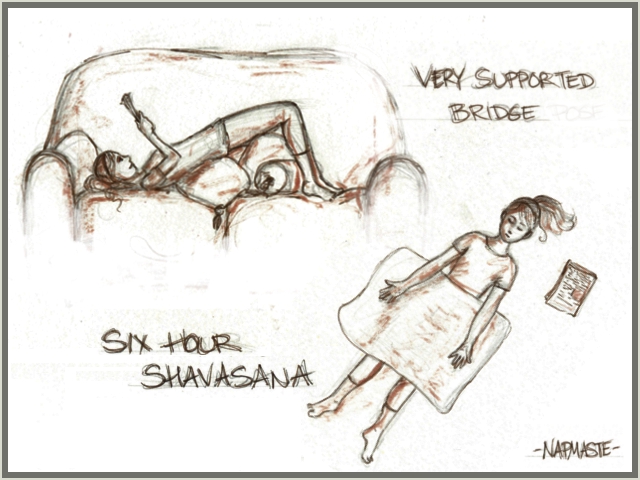 VERY SUPPORTED
BRIDGE POSE
SIX HOUR
SHAVASANA
-NAPMASTE-